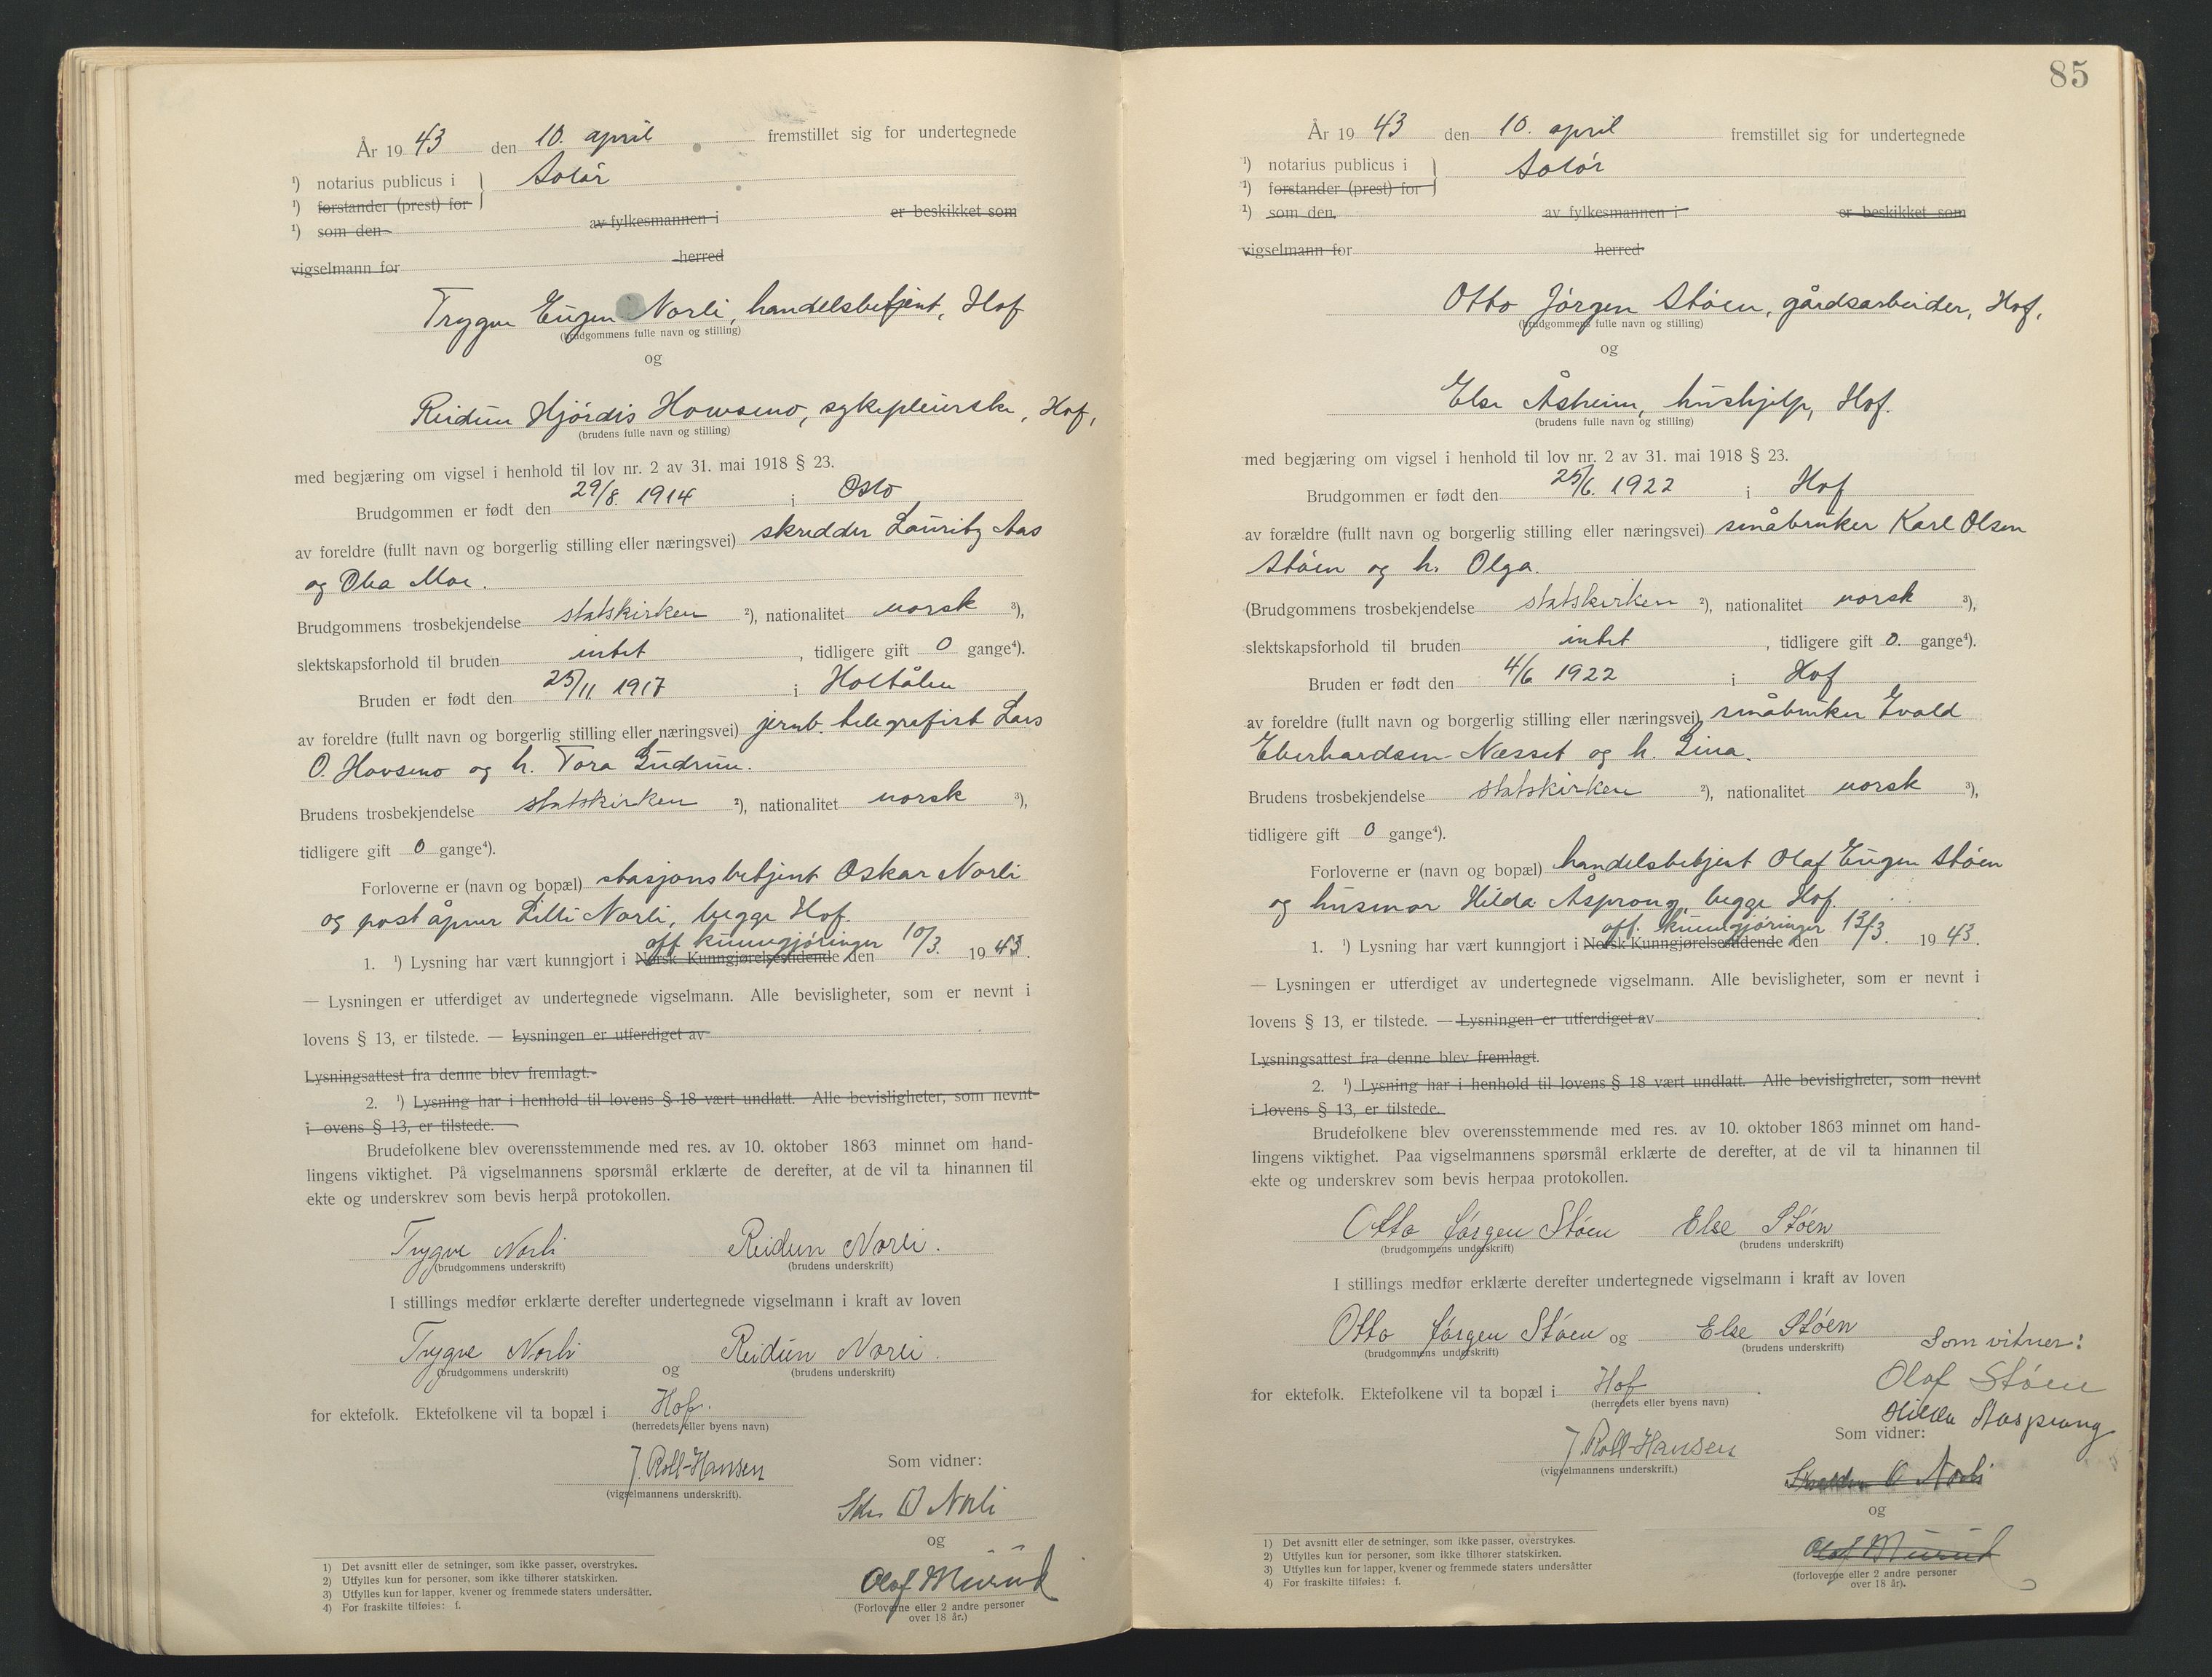 År 1943 den 10. april fremstillet sig for undertegnede
¹) notarius publicus i } Solør
¹) forstander (prest) for
¹) som den av fylkesmannen i er beskikket som
vigselmann for herred
Trygve Eugen Norli, handelsbetjent, Hof
(brudgommens fulle navn og stilling)
og
Reidun Hjørdis Howsmo, sykepleierske, Hof,
(brudens fulle navn og stilling)
med begjæring om vigsel i henhold til lov nr. 2 av 31. mai 1918 § 23.
Brudgommen er født den 29/8. 1914 i Oslo
av foreldre (fullt navn og borgerlig stilling eller næringsvei) skredder Lauritz Aas
og Olea Moe.
Brudgommens trosbekjendelse statskirken ²), nationalitet norsk ³),
slektskapsforhold til bruden intet, tidligere gift 0 gange⁴).
Bruden er født den 25/11 1917 i Holtålen
av foreldre (fullt navn og borgerlig stilling eller næringsvei) jernb. telegrafist Lars
O. Hovsmo og h. Tora Gudrun.
Brudens trosbekjendelse statskirken ²), nationalitet norsk ³),
tidligere gift 0 gange⁴).
Forloverne er (navn og bopæl) stasjonsbetjent Oskar Norli
og poståpner Lilli Norli, begge Hof.
off. kunngjøringer
1. ¹) Lysning har vært kunngjort i Norsk Kunngjørelsestidende den 10/3. 1943.
— Lysningen er utferdiget av undertegnede vigselmann. Alle bevisligheter, som er nevnt i
lovens § 13, er tilstede. — Lysningen er utferdiget av
Lysningsattest fra denne blev fremlagt.
2. ¹) Lysning har i henhold til lovens § 18 vært undlatt. Alle bevisligheter, som nevnt
i ovens § 13, er tilstede.
Brudefolkene blev overensstemmende med res. av 10. oktober 1863 minnet om hand-
lingens viktighet. På vigselmannens spørsmål erklærte de derefter, at de vil ta hinannen til
ekte og underskrev som bevis herpå protokollen.
Trygve Norli Reidun Norli.
(brudgommens underskrift) (brudens underskrift)
I stillings medfør erklærte derefter undertegnede vigselmann i kraft av loven
Trygve Norli og Reidun Norli.
(brudgommens underskrift) (brudens underskrift)
for ektefolk. Ektefolkene vil ta bopæl i Hof.
(herredets eller byens navn)
J. Roll-Hansen
(vigselmannens underskrift).
Som vidner:
O Norli
og
Olaf Murud
(Forloverne eller 2 andre personer
over 18 år.)
1) Det avsnitt eller de setninger, som ikke passer, overstrykes.
2) Utfylles kun for personer, som ikke tilhører statskirken.
3) Utfylles kun for lapper, kvener og fremmede staters undersåtter.
4) For fraskilte tilføies: f.
85
År 1943 den 10. april fremstillet sig for undertegnede
¹) notarius publicus i } Solør
¹) forstander (prest) for
¹) som den av fylkesmannen i er beskikket som
vigselmann for herred
Otto Jørgen Støen, gårdsarbeider, Hof,
(brudgommens fulle navn og stilling)
og
Else Åsheim, hushjelp, Hof.
(brudens fulle navn og stilling)
med begjæring om vigsel i henhold til lov nr. 2 av 31. mai 1918 § 23.
Brudgommen er født den 25/6. 1922 i Hof
av forældre (fullt navn og borgerlig stilling eller næringsvei) småbruker Karl Olsen
Støen og h. Olga.
(Brudgommens trosbekjendelse statskirken ²), nationalitet norsk ³),
slektskapsforhold til bruden intet, tidligere gift 0. gange⁴).
Bruden er født den 4/6 1922 i Hof
av foreldre (fullt navn og borgerlig stilling eller næringsvei) småbruker Evald
Eberhardsen Næsset og h. Gina.
Brudens trosbekjendelse statskirken ²), nationalitet norsk ³),
tidligere gift 0 gange⁴).
Forloverne er (navn og bopæl) handelsbetjent Olaf Eugen Støen
og husmor Hilda Åsprong, begge Hof.
off. kunngjøringer
1. ¹) Lysning har vært kunngjort i Norsk Kunngjørelsestidende den 13/3. 1943.
— Lysningen er utferdiget av undertegnede vigselmann. Alle bevisligheter, som er nevnt i
lovens § 13, er tilstede. — Lysningen er utferdiget av
Lysningsattest fra denne blev fremlagt.
2. ¹) Lysning har i henhold til lovens § 18 vært undlatt. Alle bevisligheter, som nevnt
i lovens § 13, er tilstede.
Brudefolkene blev overensstemmende med res. av 10. oktober 1863 minnet om hand-
lingens viktighet. Paa vigselmannens spørsmål erklærte de derefter, at de vil ta hinannen til
ekte og underskrev som bevis herpaa protokollen.
Otto Jørgen Støen Else Støen
(brudgommens underskrift) (brudens underskrift)
I stillings medfør erklærte derefter undertegnede vigselmann i kraft av loven
Otto Jørgen Støen og Else Støen
(brudgommens underskrift) (brudens underskrift)
Som vitner:
Olaf Støen
Hilda Aasprang
for ektefolk. Ektefolkene vil ta bopæl i Hof.
(herredets eller byens navn)
J Roll-Hansen
(vigselmannens underskrift.)
Som vidner:
O Norli
og
Olaf Murud
(forloverne eller 2 andre personer
over 18 år).
1) Det avsnitt eller de setninger, som ikke passer, overstrykes.
2) Utfylles kun for personer, som ikke tilhører statskirken.
3) Utfylles kun for lapper, kvener og fremmede staters undersåtter
4) For fraskilte tilføies: f.